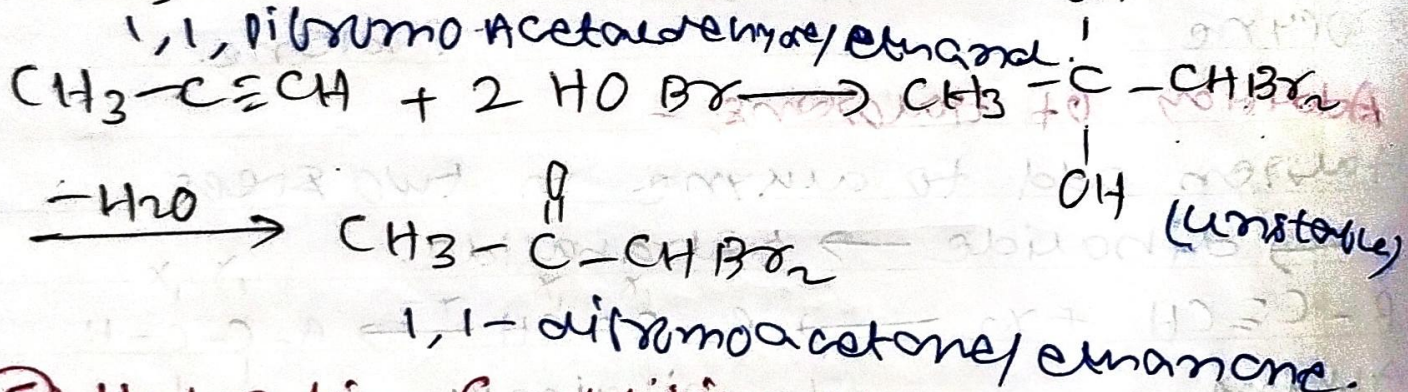 1,1, Dibromo Acetaldehyde/ethanal.
CH3-C≡CH + 2 HO Br → CH3-C-CHBr2
OH (unstable)
-H2O → CH3-C-CHBr2
O
1,1-dibromoacetone/ethanone